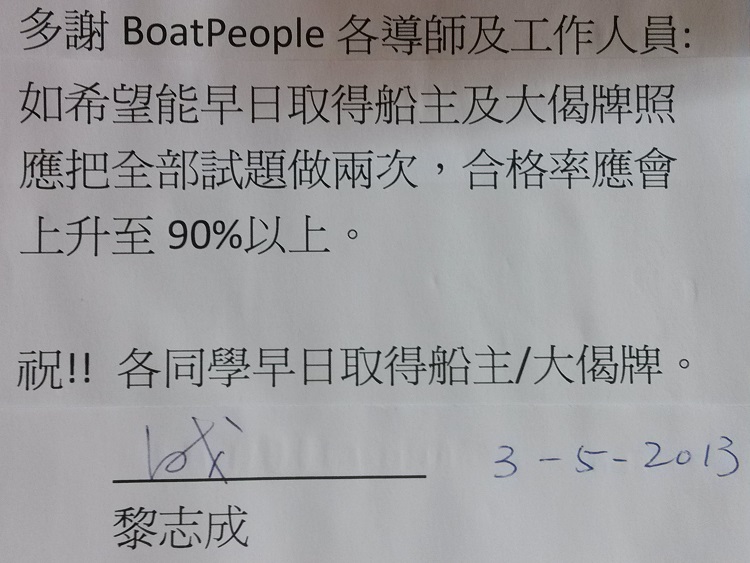 多謝 BoatPeople 各導師及工作人員:
如希望能早日取得船主及大偈牌照
應把全部試題做兩次，合格率應會
上升至 90%以上。
祝!! 各同學早日取得船主/大偈牌。
3-5-2013
黎志成